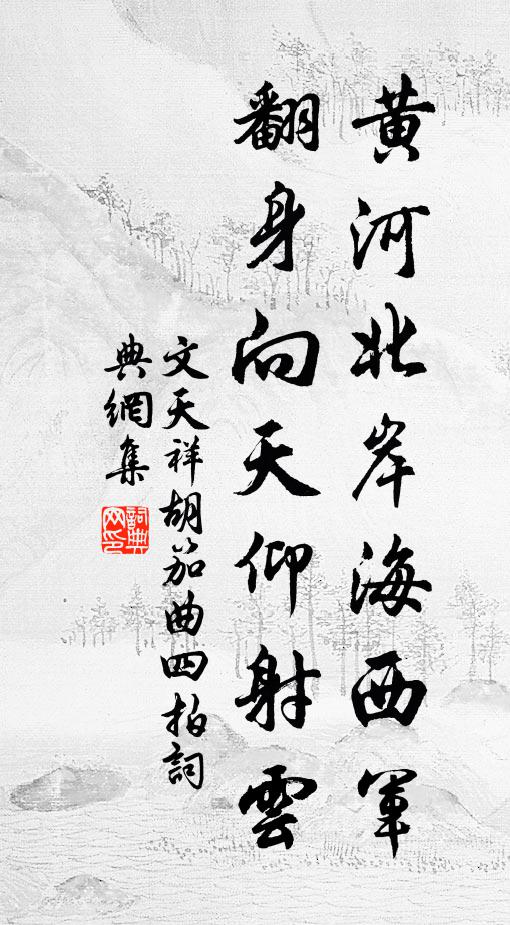 黄河北岸海西軍
翻身向天仰射雲
文天祥胡笳曲四拍詞
典網集
詞典
网印